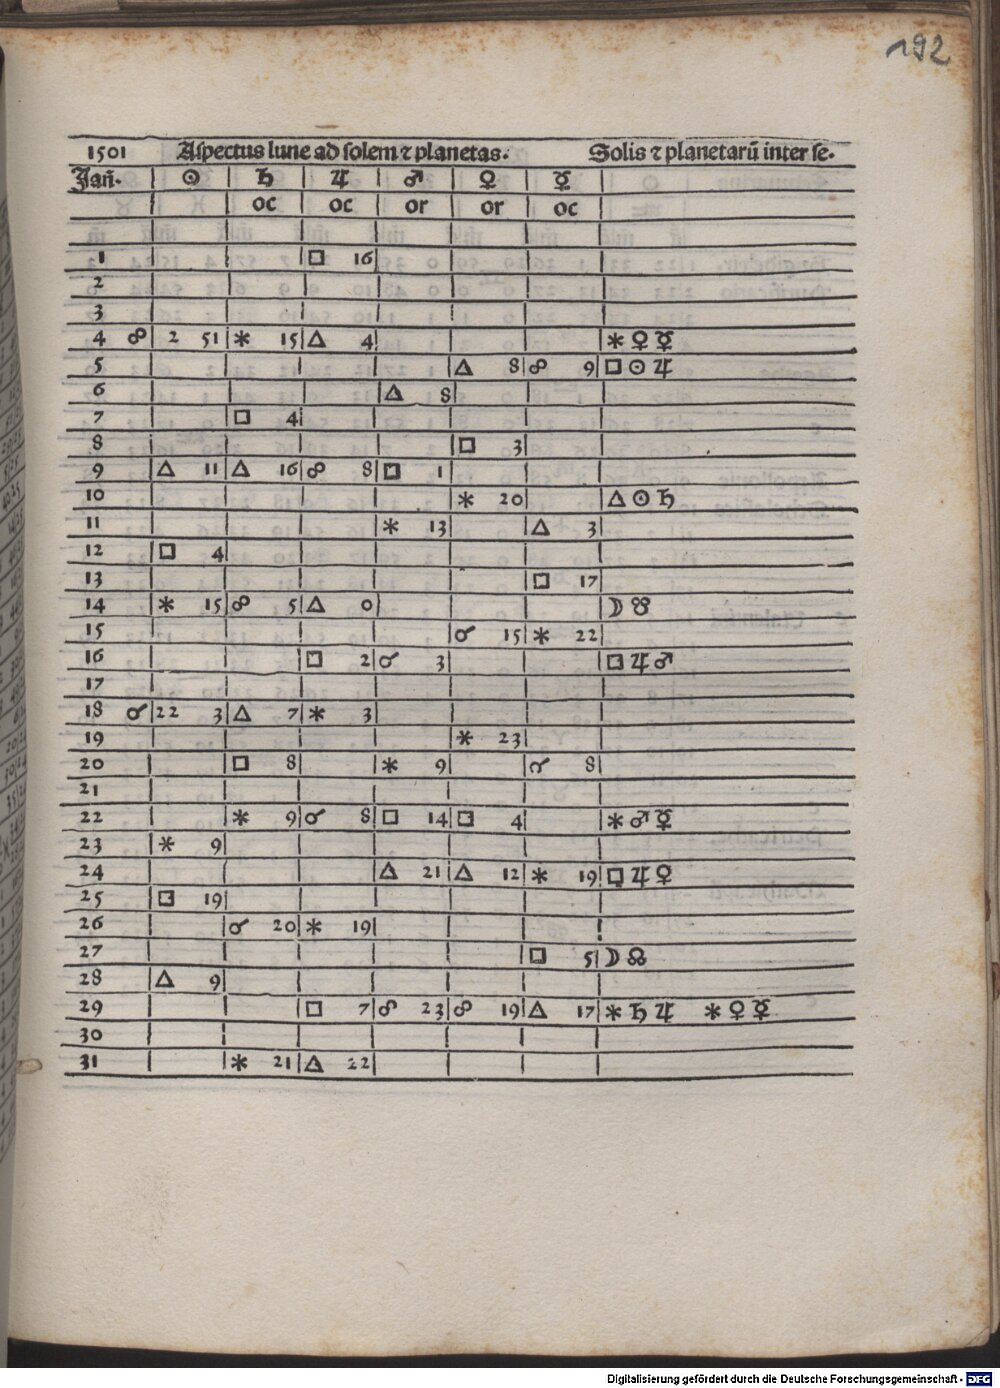 192
1501 Aspectus lune ad solem ⁊ planetas. Solis ⁊ planetarū inter se.
Jañ. ☉ ♄ ♃ ♂ ♀ ☿
oc oc or or oc
1 □ 16
2
3
4 ☍ 2 51 ⚹ 15 △ 4 ⚹ ♀ ☿
5 △ 8 ☍ 9 □ ☉ ♃
6 △ 8
7 □ 4
8 □ 3
9 △ 11 △ 16 ☍ 8 □ 1
10 ⚹ 20 △ ☉ ♄
11 ⚹ 13 △ 3
12 □ 4
13 □ 17
14 ⚹ 15 ☍ 5 △ 0 ☽ ☋
15 ☌ 15 ⚹ 22
16 □ 2 ☌ 3 □ ♃ ♂
17
18 ☌ 22 3 △ 7 ⚹ 3
19 ⚹ 23
20 □ 8 ⚹ 9 ☌ 8
21
22 ⚹ 9 ☌ 8 □ 14 □ 4 ⚹ ♂ ☿
23 ⚹ 9
24 △ 21 △ 12 ⚹ 19 □ ♃ ♀
25 □ 19
26 ☌ 20 ⚹ 19
27 □ 5 ☽ ☊
28 △ 9
29 □ 7 ☍ 23 ☍ 19 △ 17 ⚹ ♄ ♃ ⚹ ♀ ☿
30
31 ⚹ 21 △ 22
Digitalisierung gefördert durch die Deutsche Forschungsgemeinschaft - DFG